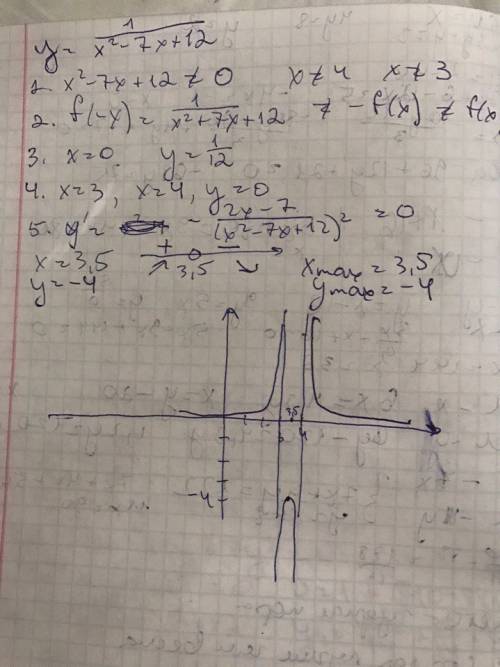 y = 1/(x² - 7x + 12)
1. x² - 7x + 12 ≠ 0 x ≠ 4 x ≠ 3
2. f(-x) = 1/(x² + 7x + 12) ≠ - f(x) ≠ f(x
3. x = 0 y = 1/12
4. x = 3, x = 4, y = 0
5. y' = - (2x - 7)/(x² - 7x + 12)² = 0
x = 3,5 + - 3,5 xmax = 3,5
y = -4 ymax = -4
3,5
3 4
-4